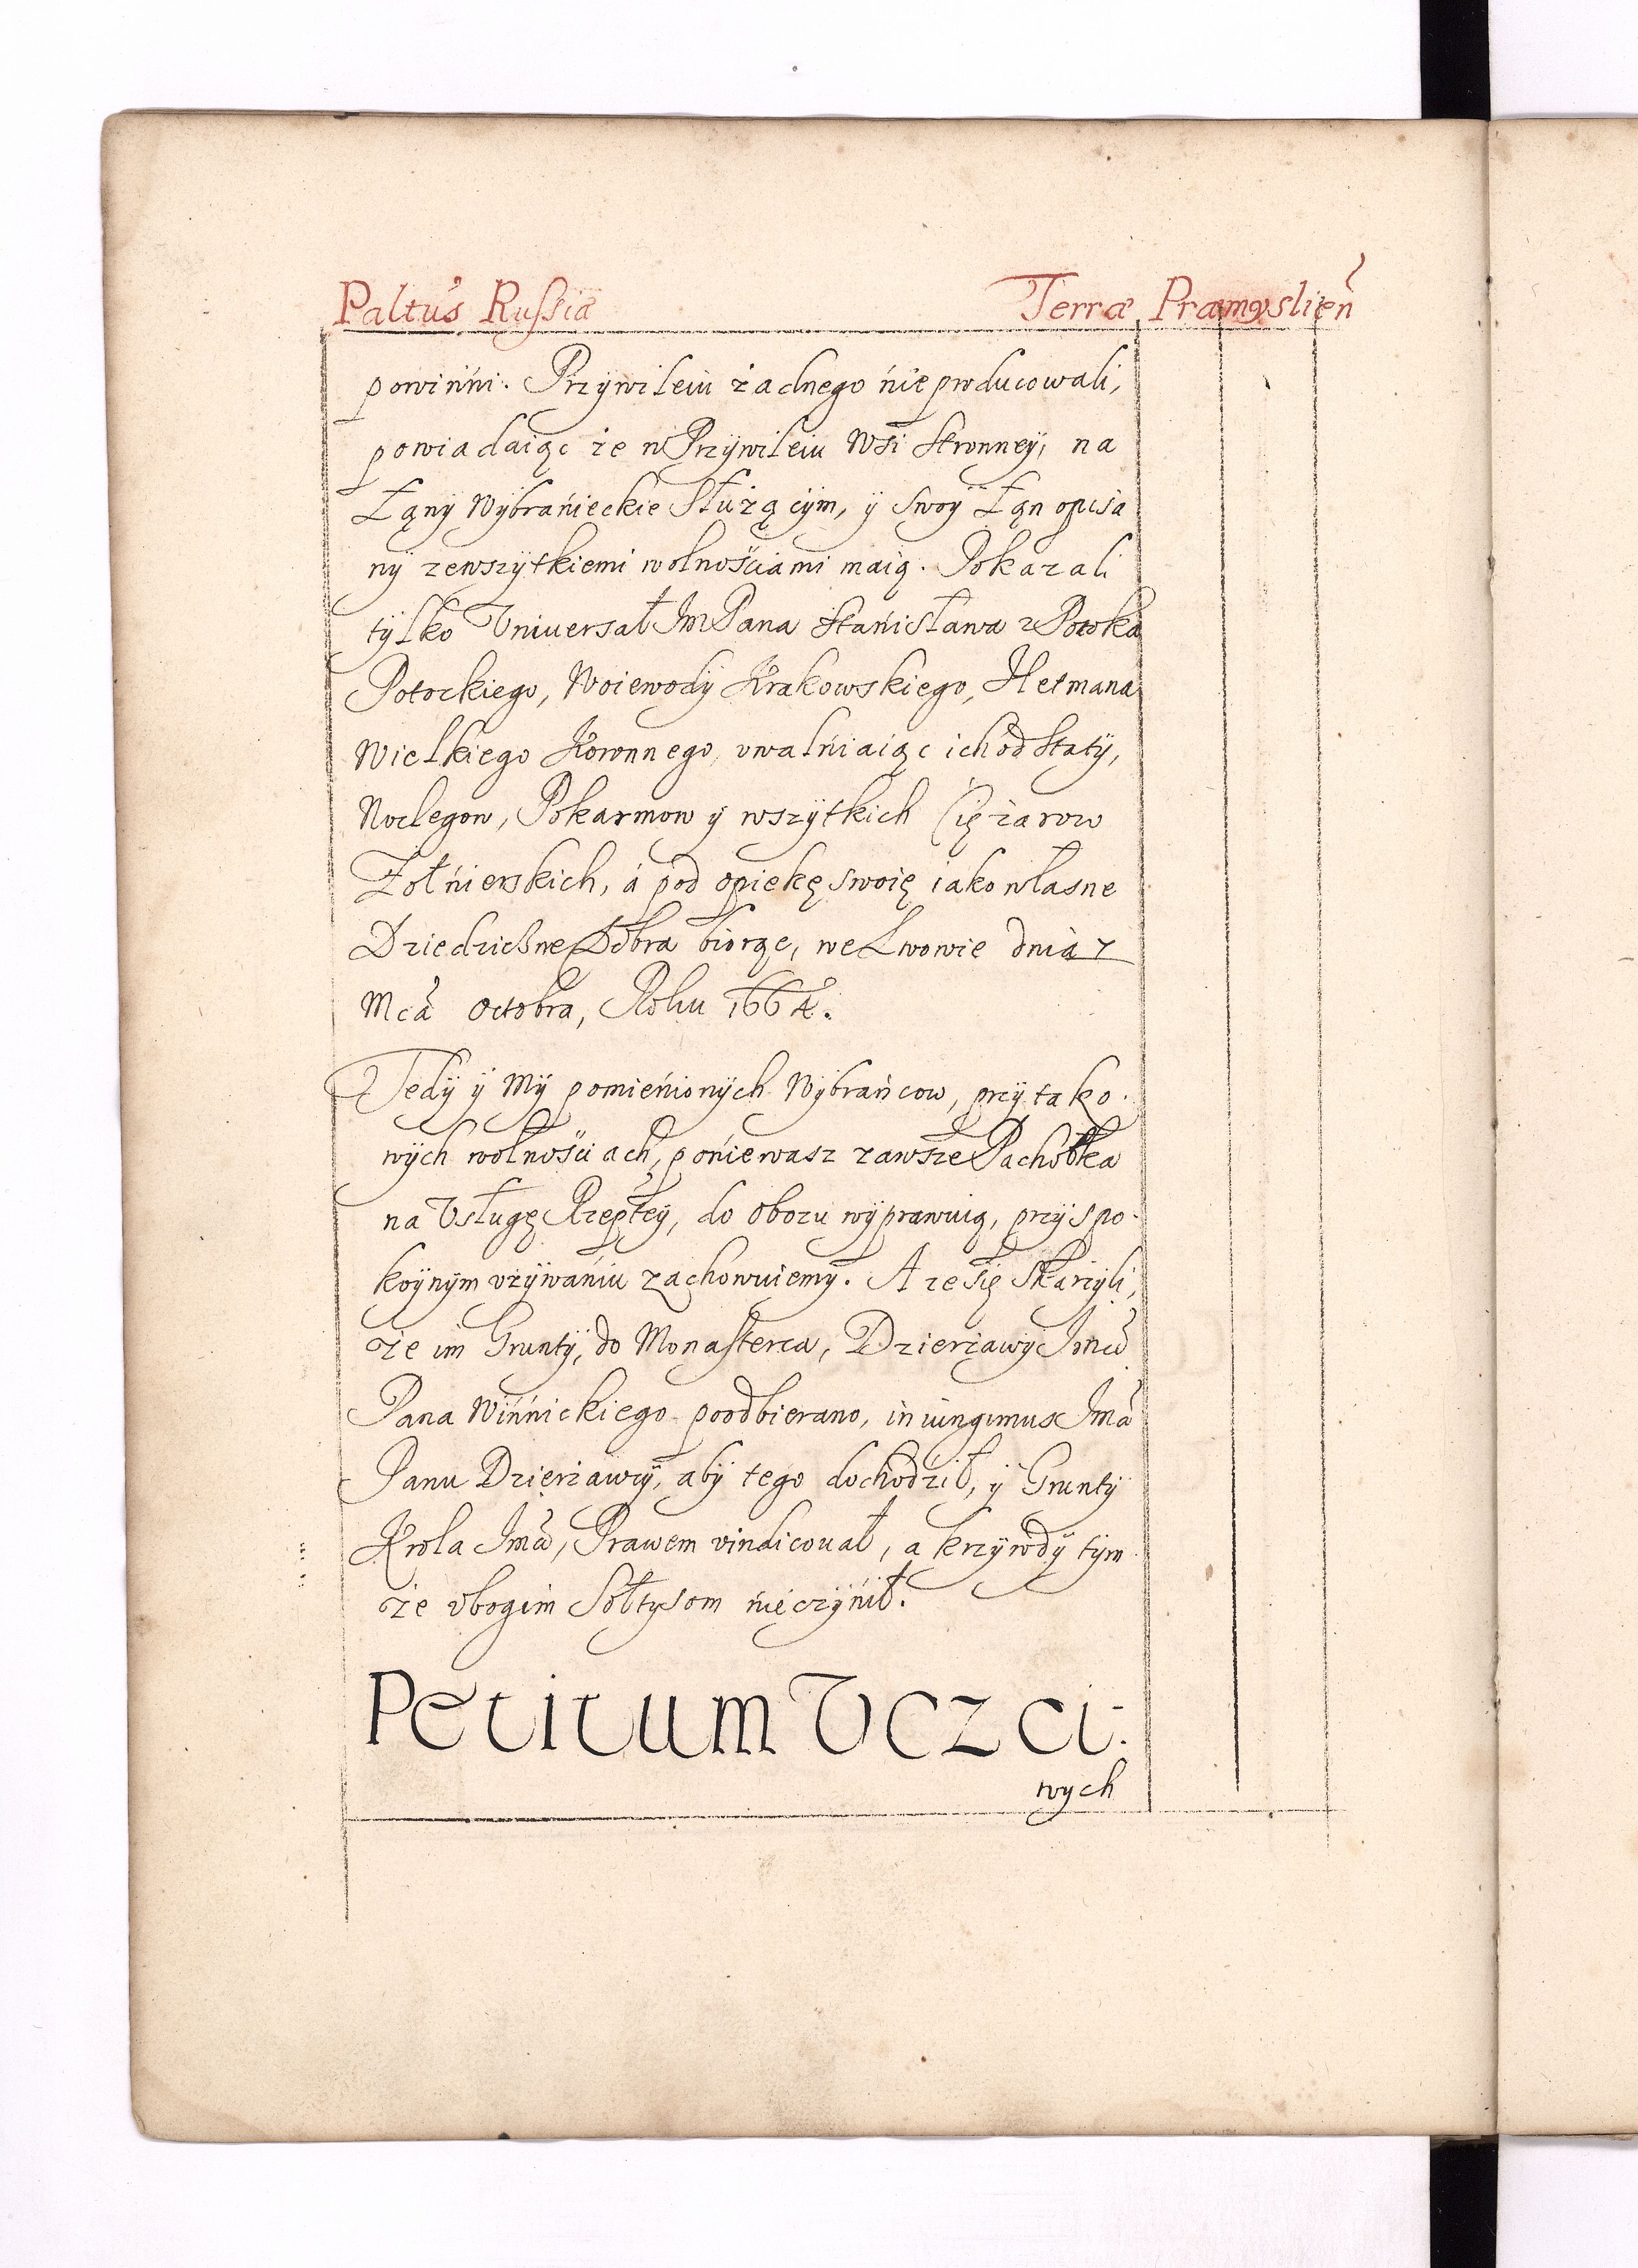 Paltus Russiæ Terræ Præmyslieñ
powinni. Przywileiu żadnego nie producowali,
powiadaiąc że w Przywileiu Wsi Stronney, na
Łany Wybranieckie Służącym, y swoy Łan opisa
ny ze wszytkiemi wolnościami maią. Pokazali
tylko Uniwersał Jm Pana Stanisława z Potoka
Potockiego, Woiewody Krakowskiego, Hetmana
Wielkiego Koronnego, uwalniaiąc ich od Staty,
Noclegow, Pokarmow y wszytkich Ciężarow
Żołnierskich, á pod opiekę swoię iako własne
Dziedziczne Dobra biorąc, we Lwowie dnia 7
Mca Octobra, Roku 1664.
Tedy y My pomienionych Wybrańcow, przy tako-
wych wolnościach, poniewasz zawsze Pachołka
na Usługę Rzepltey, do obozu wyprawuią, przy spo-
koynym używaniu zachowuiemy. A że się Skarżyli,
że im Grunty, do Monasterca, Dzierżawy Jmci
Pana Winnickiego poodbierano, iniungimus Jmci
Panu Dzierżawcy, aby tego dochodził, y Grunty
Krola Jmci, Prawem vindicował, a krzywdy tym
że ubogim Sołtysom nieczynił.
Petitum Uczci-
wych